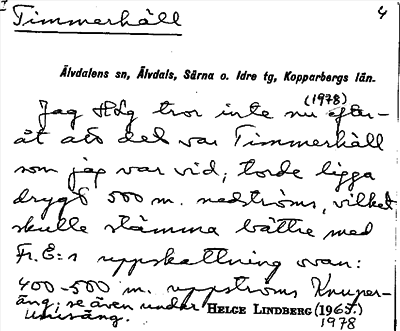 Timmerhäll 4
Älvdalens sn, Älvdals, Särna o. Idre tg, Kopparbergs län.
(1978)
Jag HLg tror inte nu efter-
åt att det var Timmerhäll
som jag var vid; torde ligga
drygt 500 m. nedströms, vilket
skulle stämma bättre med
Fr. E:s uppskattning ovan:
400-500 m. uppströms Knuper-
äng; se även under HELGE LINDBERG (1965).
1978